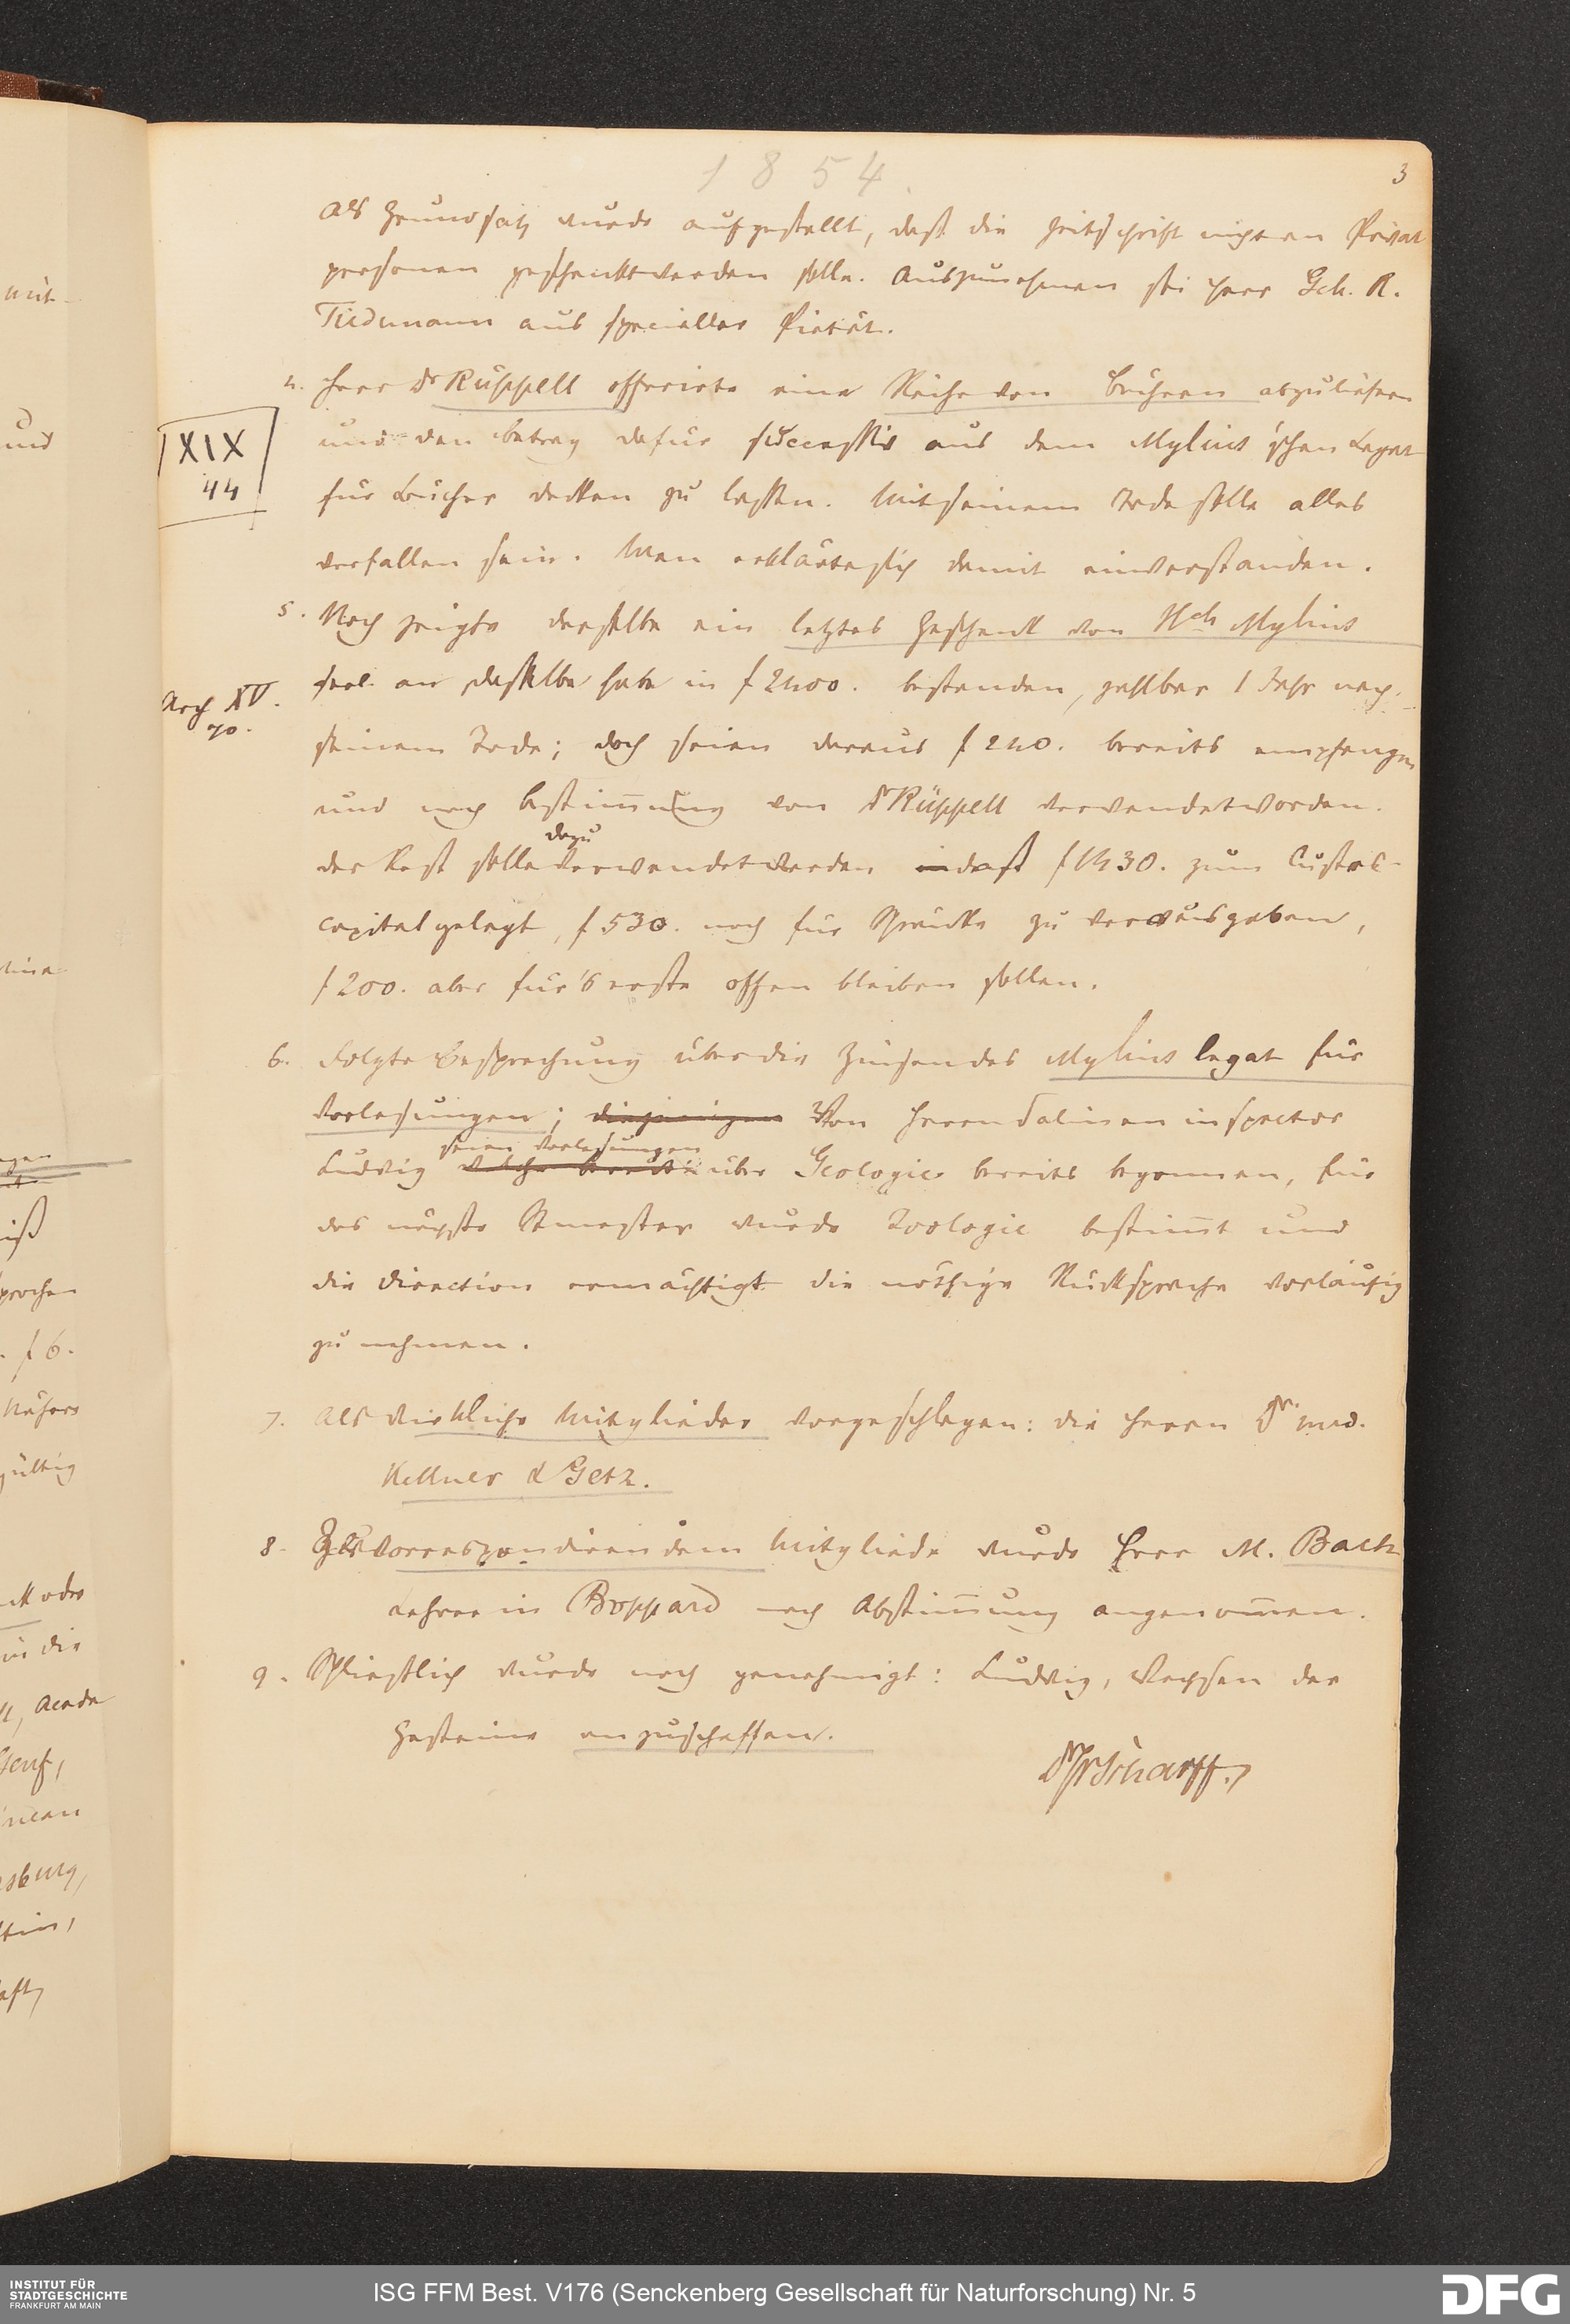 1854.
3
Als Grundsatz wurde aufgestellt, daß die Zeitschrift nicht an Privat
personen geschenkt werden solle. Auszunehmen sei Herr Geh. R.
Tiedemann aus specieller Pietät.
4. Herr Dr Rüppell offerirte eine Reihe von Büchern abzuliefern
XIX
44
und den Betrag dafür successiv aus dem Mylius'schen Legat
für Bücher decken zu lassen. Mit seinem Tode solle alles
verfallen sein. Man erklärte sich damit einverstanden.
5. Noch zeigte derselbe ein letztes Geschenk von Hch Mylius
Arch XV.
70.
seel. an dasselbe habe in f 2400. bestanden, zahlbar 1 Jahr nach
seinem Tode; doch seien daraus f 240. bereits empfangen
und nach Bestimmung von Dr Rüppell verwendet worden.
dazu
der Rest solle verwendet werden in daß f 1430. zum Custos-
capital gelegt, f 530. noch für Schränke zu verausgaben,
f 200. aber für's erste offen bleiben sollen.
6. Folgte Besprechung über die Zinsen des Mylius legat für
Vorlesungen; diejenigen Von Herrn Salineninspector
seien Vorlesungen
Ludwig welche bereits über Geologie bereits begonnen, für
das nächste Semester wurde Zoologie bestimmt und
die Direction ermächtigt die nöthige Rücksprache vorläufig
zu nehmen.
7. Als Wirkliche Mitglieder vorgeschlagen: die Herren Dr. med.
Kellner & Getz.
8. Correspondirendem Mitgliede wurde Herr M. Bach
Lehrer in Boppard nach Abstimmung angenommen.
9. Schließlich wurde noch genehmigt: Ludwig, Wachsen der
Gesteine anzuschaffen.
Dr Fr Scharff.
INSTITUT FÜR
STADTGESCHICHTE
FRANKFURT AM MAIN
ISG FFM Best. V176 (Senckenberg Gesellschaft für Naturforschung) Nr. 5
DFG